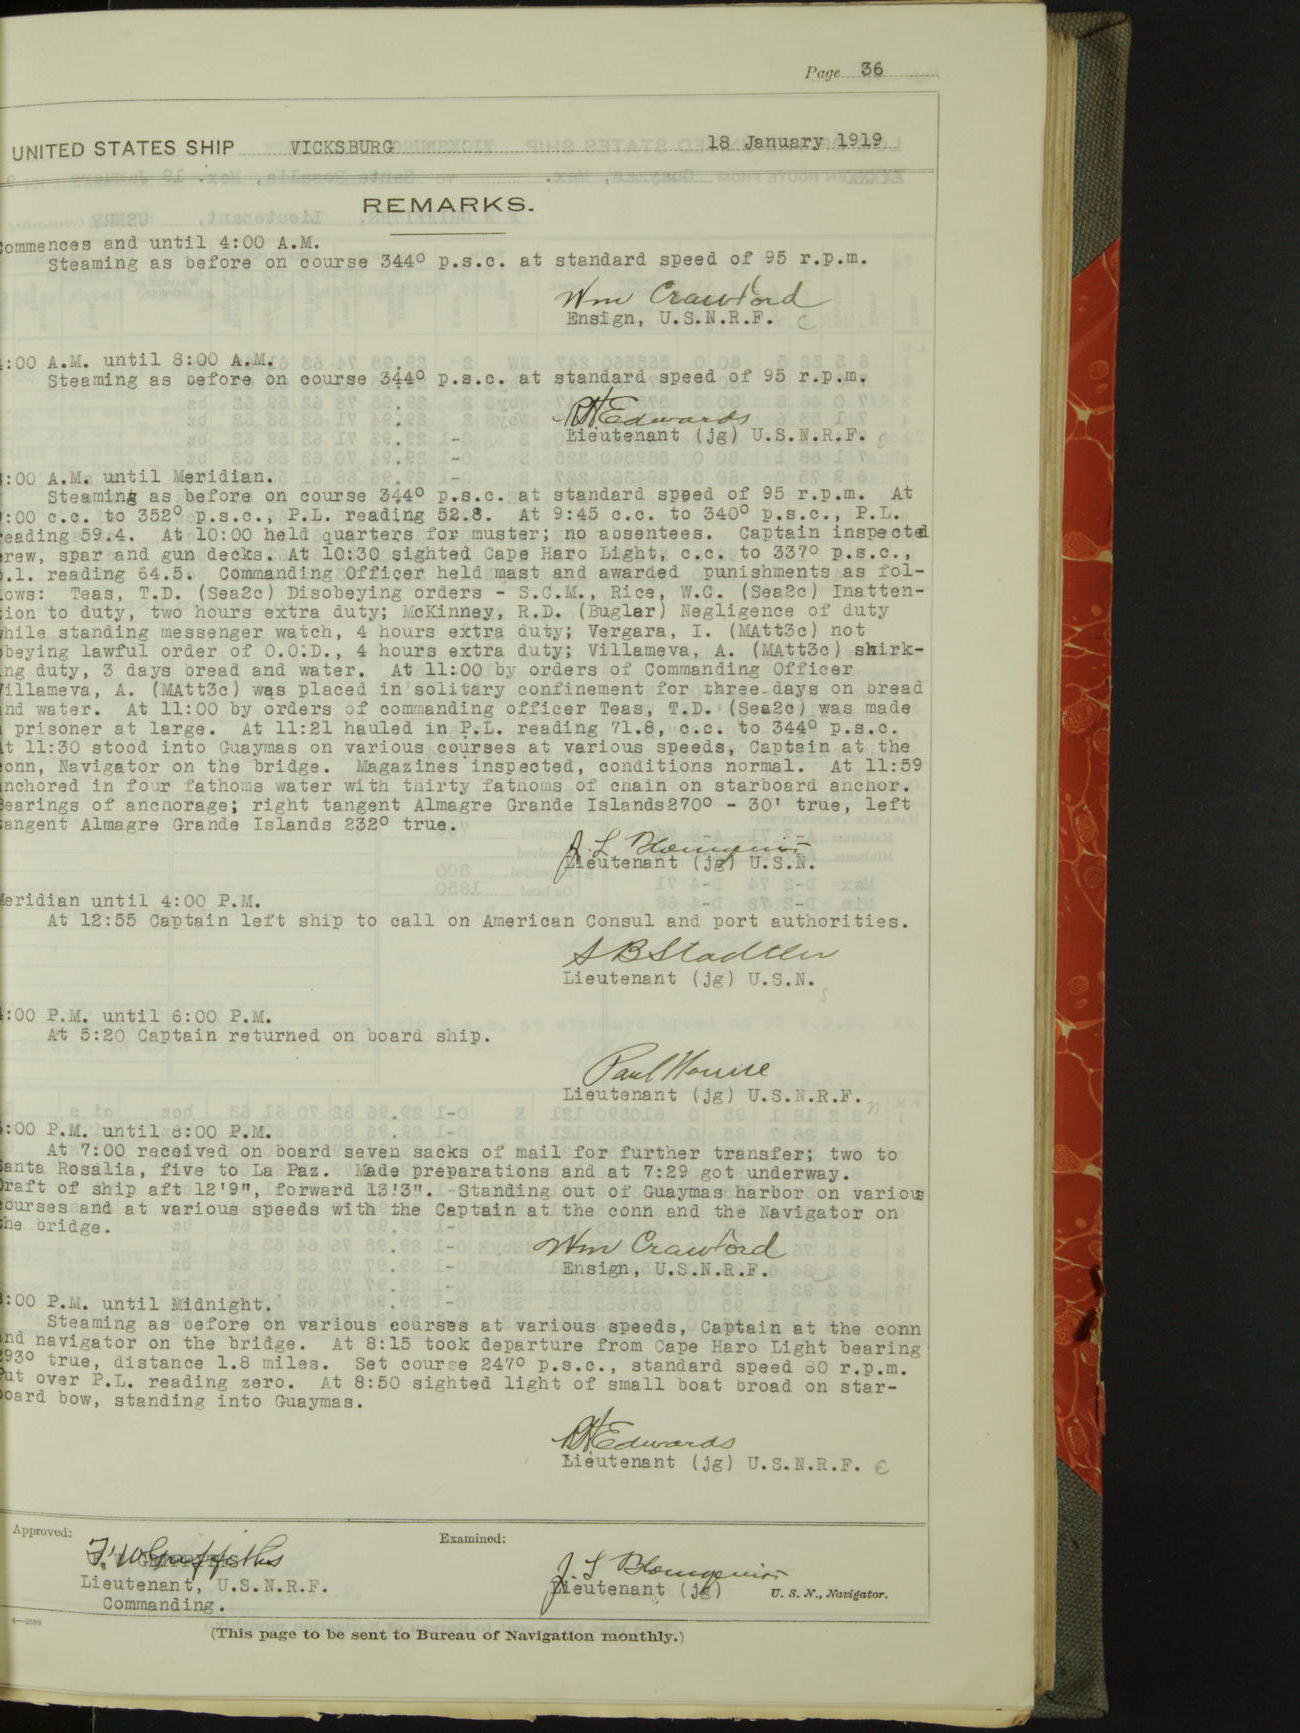 Page 36
UNITED STATES SHIP VICKSBURG 18 January 1919
REMARKS.
ommences and until 4:00 A.M.
Steaming as before on course 344° p.s.c. at standard speed of 95 r.p.m.
Wm Crawford
Ensign, U.S.N.R.F. C
:00 A.M. until 8:00 A.M.
Steaming as before on course 344° p.s.c. at standard speed of 95 r.p.m.
RH Edwards
Lieutenant (jg) U.S.N.R.F.
:00 A.M. until Meridian.
Steaming as before on course 344° p.s.c. at standard speed of 95 r.p.m. At
:00 c.c. to 352° p.s.c., P.L. reading 52.8. At 9:45 c.c. to 340° p.s.c., P.L.
eading 59.4. At 10:00 held quarters for muster; no absentees. Captain inspected
rew, spar and gun decks. At 10:30 sighted Cape Haro Light, c.c. to 337° p.s.c.,
.l. reading 64.5. Commanding Officer held mast and awarded punishments as fol-
ows: Teas, T.D. (Sea2c) Disobeying orders - S.C.M., Rice, W.C. (Sea2c) Inatten-
ion to duty, two hours extra duty; McKinney, R.D. (Buglar) Negligence of duty
hile standing messenger watch, 4 hours extra duty; Vergara, I. (MAtt3c) not
beying lawful order of O.O.D., 4 hours extra duty; Villameva, A. (MAtt3c) shirk-
ng duty, 3 days bread and water. At 11:00 by orders of Commanding Officer
illameva, A. (MAtt3c) was placed in solitary confinement for three days on bread
nd water. At 11:00 by orders of commanding officer Teas, T.D. (Sea2c) was made
prisoner at large. At 11:21 hauled in P.L. reading 71.8, c.c. to 344° p.s.c.
t 11:30 stood into Guaymas on various courses at various speeds, Captain at the
onn, Navigator on the bridge. Magazines inspected, conditions normal. At 11:59
nchored in four fathoms water with thirty fathoms of chain on starboard anchor.
earings of anchorage; right tangent Almagre Grande Islands270° - 30' true, left
angent Almagre Grande Islands 232° true.
J. L
Lieutenant (jg) U.S.N.
eridian until 4:00 P.M.
At 12:55 Captain left ship to call on American Consul and port authorities.
S B Stadtler
Lieutenant (jg) U.S.N.
:00 P.M. until 6:00 P.M.
At 5:20 Captain returned on board ship.
Paul
Lieutenant (jg) U.S.N.R.F.
:00 P.M. until 8:00 P.M.
At 7:00 received on board seven sacks of mail for further transfer; two to
anta Rosalia, five to La Paz. Made preparations and at 7:29 got underway.
raft of ship aft 12'9", forward 13'3". Standing out of Guaymas harbor on various
ourses and at various speeds with the Captain at the conn and the Navigator on
he bridge.
Wm Crawford
Ensign, U.S.N.R.F.
:00 P.M. until Midnight.
Steaming as before on various courses at various speeds, Captain at the conn
nd navigator on the bridge. At 8:15 took departure from Cape Haro Light bearing
293° true, distance 1.8 miles. Set course 247° p.s.c., standard speed 80 r.p.m.
ut over P.L. reading zero. At 8:50 sighted light of small boat broad on star-
oard bow, standing into Guaymas.
RH Edwards
Lieutenant (jg) U.S.N.R.F.
Approved: Examined:
F. W Griffiths J. L
Lieutenant, U.S.N.R.F. Lieutenant (jg) U. S. N., Navigator.
Commanding.
(This page to be sent to Bureau of Navigation monthly.)